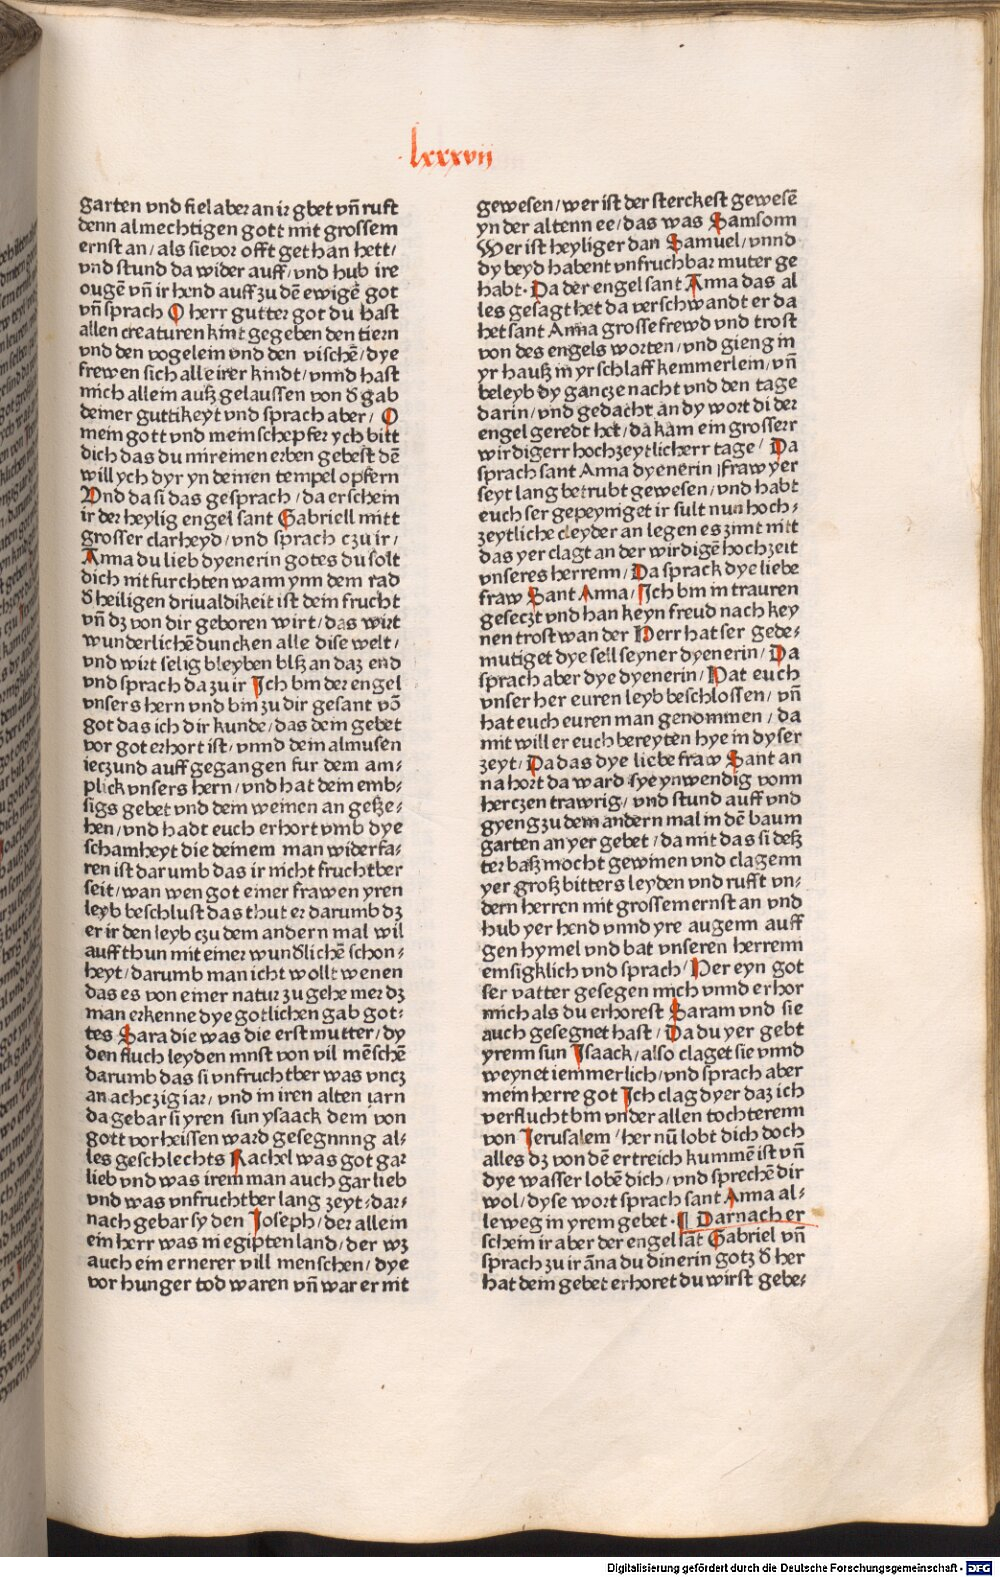 lxxxvii
garten vnd fiel aber an ir gbet vñ ruft
denn almechtigen gott mit grossem
ernst an / als sie vor offt gethan hett /
vnd stund da wider auff / vnd hub ire
ougē vñ ir hend auff zu dē ewigē got
vñ sprach O herr gutter got du hast
allen creaturen kint gegeben den tiern
vnd den vogelein vnd den vischē / dye
frewen sich alle irer kindt / vnnd hast
mich allein außgelaussen von d̄ gab
deiner guttikeyt vnd sprach aber / O
mein gott vnd mein schepfer ych bitt
dich das du mir einen erben gebest dē
will ych dyr yn deinen tempel opfern
Vnd da si das gesprach / da erschein
ir der heylig engel sant Gabriell mitt
grosser clarheyd / vnd sprach czu ir /
Anna du lieb dyenerin gotes du solt
dich nit furchten wann ynn dem rad
d̄ heiligen driualdikeit ist dein frucht
vñ dz von dir geboren wirt / das wirt
wunderlichē duncken alle dise welt /
vnd wirt selig bleyben biß an daz end
vnd sprach da zu ir Ich bin der engel
vnsers hern vnd bin zu dir gesant vō
got das ich dir kunde / das dein gebet
vor got erhort ist / vnnd dein almusen
ieczund auff gegangen fur dem am-
plick vnsers hern / vnd hat dein emb-
sigs gebet vnd dein weinen an gesze-
hen / vnd hadt euch erhort vmb dye
schamheyt die deinem man widerfa-
ren ist darumb das ir nicht fruchtber
seit / wan wen got einer frawen yren
leyb beschlust das thut er darumb dz
er ir den leyb czu dem andern mal wil
auff thun mit einer wund̄lichē schon-
heyt / darumb man icht wollt wenen
das es von einer natur zu gehe mer dz
man erkenne dye gotlichen gab got-
tes Sara die was die erst mutter / dy
den fluch leyden must von vil mēschē
darumb das si vnfruchtber was vncz
an achczig iar / vnd in iren alten iarn
da gebar si yren sun ysaack dem von
gott vorheissen ward gesegnnng al-
les geschlechts Rachel was got gar
lieb vnd was irem man auch gar lieb
vnd was vnfruchtber lang zeyt / dar-
nach gebar sy den Ioseph / der allein
ein herr was in egiptenland / der wz
auch ein ernerer vill menschen / dye
vor hunger tod waren vñ war er nit
gewesen / wer ist der sterckest gewesē
yn der alten ee / das was Samsonn
Wer ist heyliger dan Samuel / vnnd
dy beyd habent vnfruchbar muter ge
habt. Da der engel sant Anna das al
les gesagt het da verschwandt er da
het sant Anna grosse frewd vnd trost
von des engels worten / vnd gieng in
yr hauß in yr schlaff kemmerlein / vñ
beleyb dy gancze nacht vnd den tage
darin / vnd gedacht an dy wort di der
engel geredt het / da kam ein grosserr
wirdigerr hochzeytlicherr tage / Da
sprach sant Anna dyenerin / fraw yer
seyt lang betrubt gewesen / vnd habt
euch ser gepeyniget ir sult nun hoch-
zeytliche cleyder an legen es zimt nitt
das yer clagt an der wirdigē hochzeit
vnseres herrenn / Da sprack dye liebe
fraw Sant Anna / Ich bin in trauren
geseczt vnd han keyn freud nach key
nen trost wan der Herr hat ser gede-
mutiget dye sell seyner dyenerin / Da
sprach aber dye dyenerin / Hat euch
vnser her euren leyb beschlossen / vñ
hat euch euren man genommen / da
mit will er euch bereyten hye in dyser
zeyt / Da das dye liebe fraw Sant an
na hort da ward sye ynwendig vonn
herczen trawrig / vnd stund auff vnd
gyeng zu dem andern mal in dē baum
garten an yer gebet / da mit das si desz
ter basz mocht gewinen vnd clagenn
yer groß bitters leyden vnd rufft vn-
dern herren mit grossem ernst an vnd
hub yer hend vnnd yre augenn auff
gen hymel vnd bat vnseren herrenn
emsigklich vnd sprach / Her eyn got
ser vatter gesegen mich vnnd erhor
mich als du erhorest Saram vnd sie
auch gesegnet hast / Da du yer gebt
yrenn sun Isaack / also claget sie vnnd
weynet iemmerlich / vnd sprach aber
mein herre got Ich clag dyer daz ich
verflucht bin vnder allen tochterenn
von Ierusalem / her nū lobt dich doch
alles dz von dē ertreich kummē ist vñ
dye wasser lobē dich / vnd sprechē dir
wol / dyse wort sprach sant Anna al-
leweg in yrem gebet. ¶ Darnach er
schein ir aber der engel sāt Gabriel vñ
sprach zu ir āna du dinerin gotz d̄ her
hat dein gebet erhoret du wirst gebe-
Digitalisierung gefördert durch die Deutsche Forschungsgemeinschaft - DFG